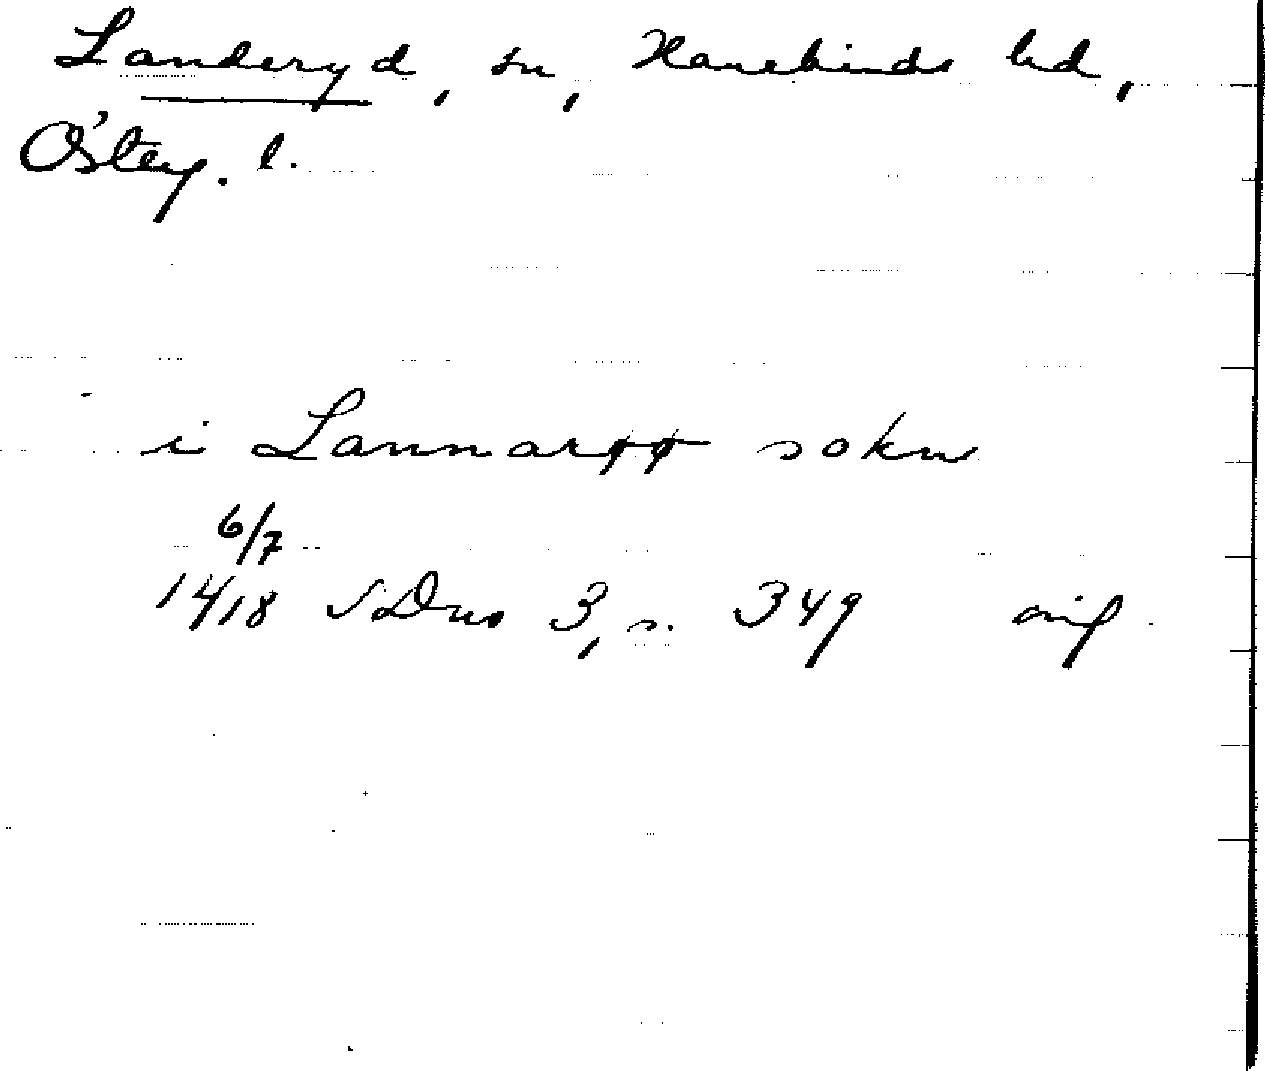 Landeryd, sn, Hanekinds hd,
Österg. l.
i Lannarþþ sokn
6/7
1418 SDns 3, s. 349 orig